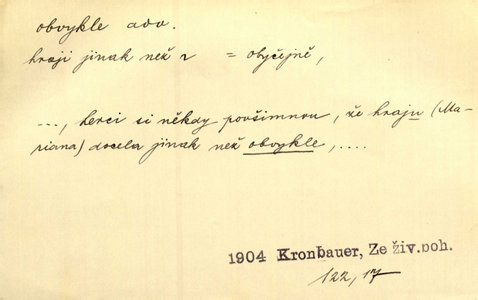 obvykle adv.
hraji jinak než ~ = obyčejně,
..., herci si někdy povšimnou, že hraju (Ma-
riana) docela jinak než obvykle, ....
1904 Kronbauer, Ze živ.boh.
122, 17